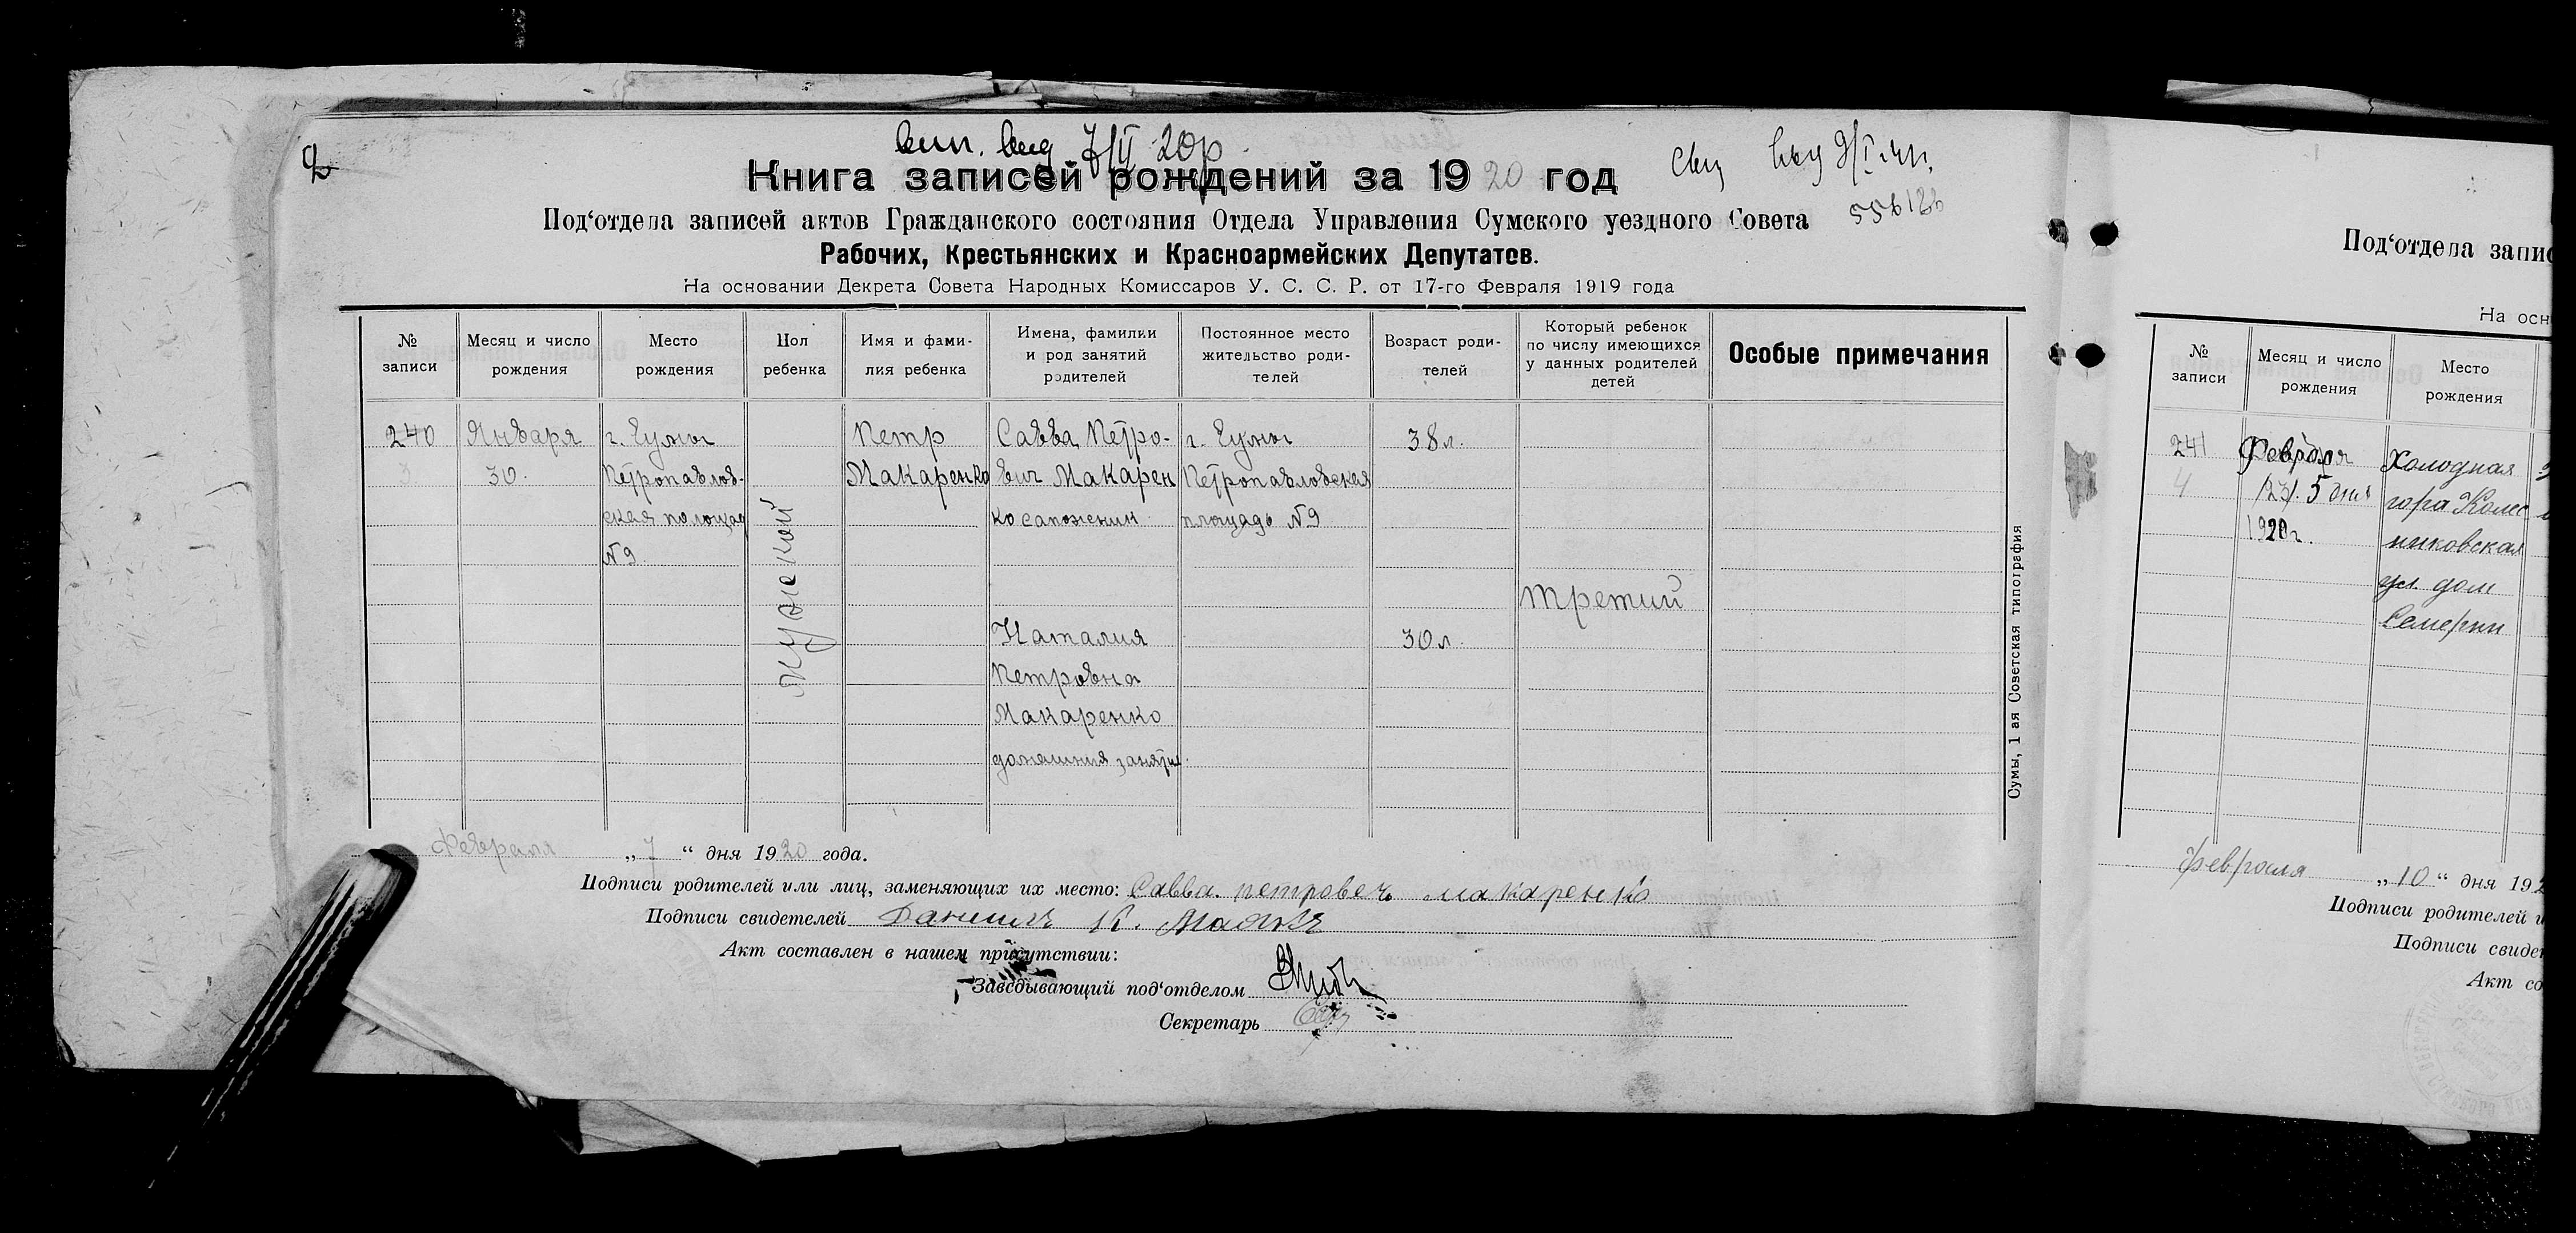 вип. вид 7/II 20р.
Книга записей рождений за 1920 год
Свід вид 9/I.41г.
Под‘отдела записей актов Гражданского состояния Отдела Управления Сумского уездного Совета
Рабочих, Крестьянских и Красноармейских Депутатов.
На основании Декрета Совета Народных Комиссаров У. С. С. Р. от 17-го Февраля 1919 года
№ записи
Месяц и число рождения
Место рождения
Пол ребенка
Имя и фами-
лия ребенка
Имена, фамилии
и род занятий
родителей
Постоянное место
жительство роди-
телей
Возраст роди-
телей
Который ребенок
по числу имеющихся
у данных родителей
детей
Особые примечания
240
3
Января
30.
г. Сумы
Петропавлов-
ская площад
№9
мужской
Петр
Макаренко
Савва Петро-
вич Макарен
ко сапожник
Наталия
Петровна
Макаренко
домашния занятия
г. Сумы
Петропавловская
площадь №9
38 л.
30 л.
третий
Сумы, 1 ая Советская типография
Февраля „7“ дня 1920 года.
Подписи родителей или лиц, заменяющих их место: Савва. петровечь макаренко
Подписи свидетелей Данишъ К.
Акт составлен в нашем присутствии:
Заведывающий под‘отделом
Секретарь
Под‘отдела запис
На осн
№ записи
Месяц и число рождения
Место рождения
241
4
Февраля
/23/. 5 дня
1920 г.
Холодная
гора Колес
никовская
ул. дом
февраля „10“ дня 192
Подписи родителей и
Подписи свиде
Акт со